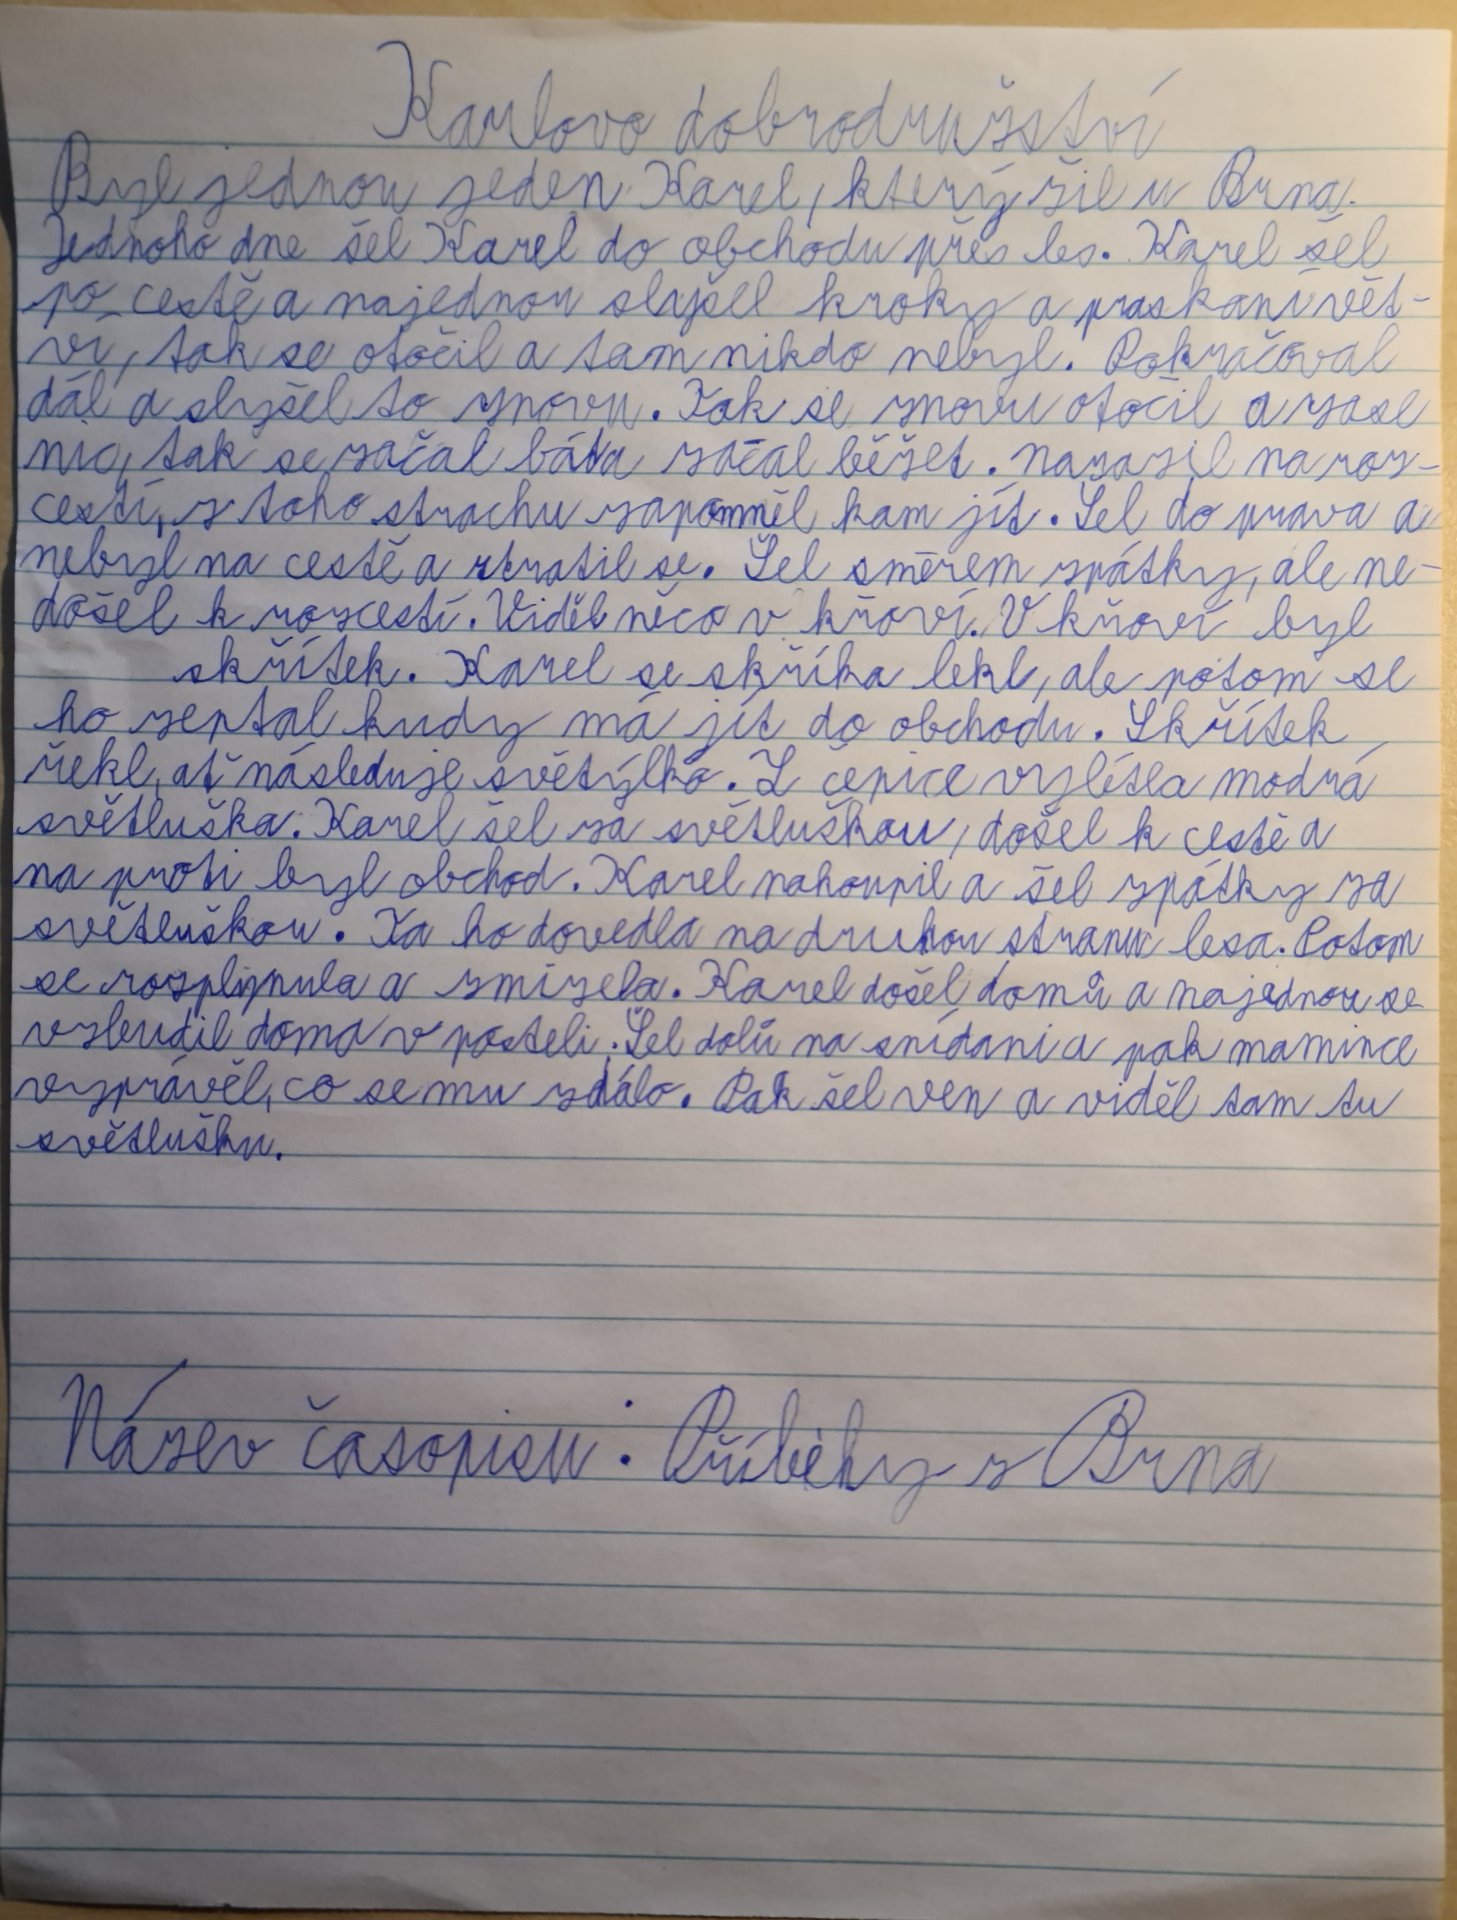 Karlovo dobrodružství
Byl jednou jeden Karel, který žil u Brna.
Jednoho dne šel Karel do obchodu přes les. Karel šel
po cestě a najednou slyšel kroky a praskání vět-
ví, tak se otočil a tam nikdo nebyl. Pokračoval
dál a slyšel to znovu. Tak se znovu otočil a zase
nic, tak se začal bát a začal běžet. Narazil na roz-
cestí, z toho strachu zapomněl kam jít. Šel do prava a
nebyl na cestě a ztratil se. Šel směrem zpátky, ale ne-
došel k rozcestí. Viděl něco v křoví. V křoví byl
skřítek. Karel se skříka lekl, ale potom se
ho zeptal kudy má jít do obchodu. Skřítek
řekl, ať následuje světýlko. Z čepice vylétla modrá
světluška. Karel šel za světluškou, došel k cestě a
na proti byl obchod. Karel nakoupil a šel zpátky za
světluškou. Ta ho dovedla na druhou stranu lesa. Potom
se rozplynula a zmizela. Karel došel domů a najednou se
vzbudil doma v posteli. Šel dolů na snídani a pak mamince
vyprávěl, co se mu zdálo. Pak šel ven a viděl tam tu
světlušku.
Název časopisu: Příběhy z Brna